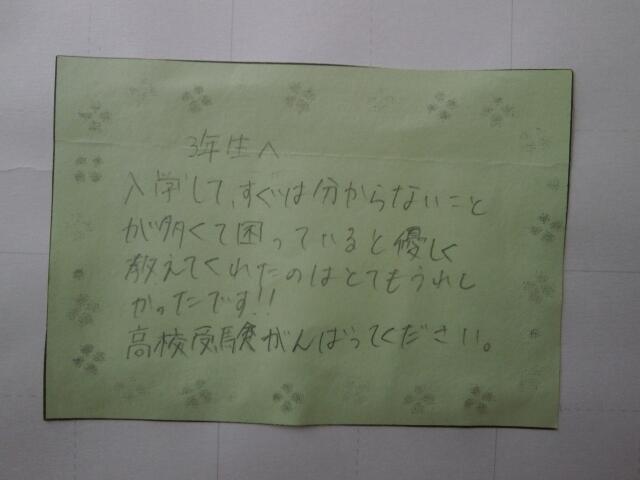 3年生へ
入学して、すぐは分からないこと
が多くて困っていると優しく
教えてくれたのはとてもうれし
かったです!!
高校受験がんばってください。